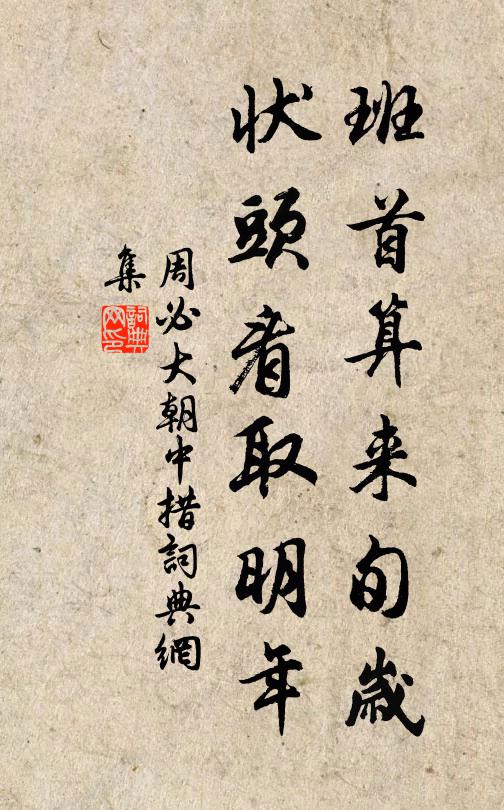 班首算来旬歲
状頭看取明年
周必大朝中措詞典網
集
詞典
网印